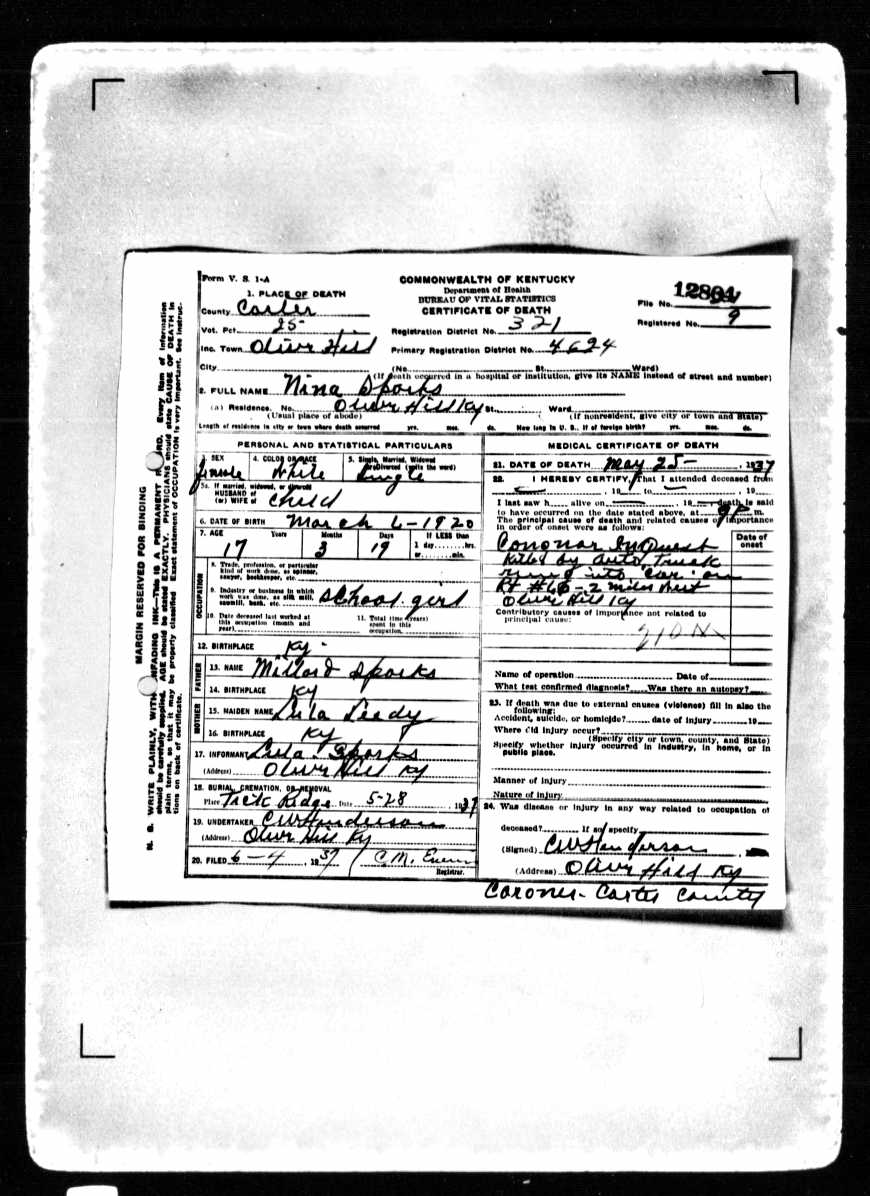 Form V. S. 1-A
COMMONWEALTH OF KENTUCKY
Department of Health
BUREAU OF VITAL STATISTICS
CERTIFICATE OF DEATH
File No.
Registered No. 9
1. PLACE OF DEATH
County Carter
Vot. Pct. 25
Inc. Town Olive Hill
City
Registration District No. 321
Primary Registration District No. 4624
(No. St. Ward)
(If death occurred in a hospital or institution, give its NAME instead of street and number)
2. FULL NAME Nina Sparks
(a) Residence. No. Olive Hill Ky St. Ward
(Usual place of abode) (If nonresident, give city or town and State)
Length of residence in city or town where death occurred yrs. mos. ds. How long in U. S., if of foreign birth? yrs. mos. ds.
PERSONAL AND STATISTICAL PARTICULARS
3. SEX 4. COLOR OR RACE 5. Single, Married, Widowed
or Divorced (write the word)
female White Single
5a. If married, widowed, or divorced
HUSBAND of
(or) WIFE of Child
6. DATE OF BIRTH March 6-1920
7. AGE Years Months Days If LESS than
1 day hrs.
or min.
17 3 19
OCCUPATION
8. Trade, profession, or particular
kind of work done, as spinner,
sawyer, bookkeeper, etc.
9. Industry or business in which
work was done, as silk mill,
sawmill, bank, etc. School girl
10. Date deceased last worked at
this occupation (month and
year)
11. Total time (years)
spent in this
occupation
12. BIRTHPLACE Ky
FATHER
13. NAME Millard Sparks
14. BIRTHPLACE Ky
MOTHER
15. MAIDEN NAME Lula
16. BIRTHPLACE Ky
17. INFORMANT Lula Sparks
(Address) Olive Hill Ky
18. BURIAL, CREMATION, OR REMOVAL
Place Tick Ridge Date 5-28 1937
19. UNDERTAKER CW Henderson
(Address) Olive Hill Ky
20. FILED 6-4 1937 C.M.
Registrar.
MEDICAL CERTIFICATE OF DEATH
21. DATE OF DEATH May 25- , 1937
22. I HEREBY CERTIFY, That I attended deceased from
, 19 to , 19
I last saw h alive on , 19 , death is said
to have occurred on the date stated above, at 9P m.
The principal cause of death and related causes of importance
in order of onset were as follows:
Date of
onset
Cononar InQuest
Killed by auto, Truck
into Car on
Rt #60-2 miles West
Olive Hill Ky
Contributory causes of importance not related to
principal cause:
Name of operation Date of
What test confirmed diagnosis? Was there an autopsy?
23. If death was due to external causes (violence) fill in also the
following:
Accident, suicide, or homicide? date of injury 19
Where did injury occur?
(Specify city or town, county, and State)
Specify whether injury occurred in industry, in home, or in
public place.
Manner of injury
Nature of injury
24. Was disease or injury in any way related to occupation of
deceased? If so, specify
(Signed) CW Henderson
(Address) Olive Hill Ky
Coroner- Carter County
MARGIN RESERVED FOR BINDING
N. B. WRITE PLAINLY, WITH UNFADING INK—THIS IS A PERMANENT RECORD. Every item of information
should be carefully supplied. AGE should be stated EXACTLY. PHYSICIANS should state CAUSE OF DEATH in
plain terms, so that it may be properly classified. Exact statement of OCCUPATION is very important. See instruc-
tions on back of certificate.